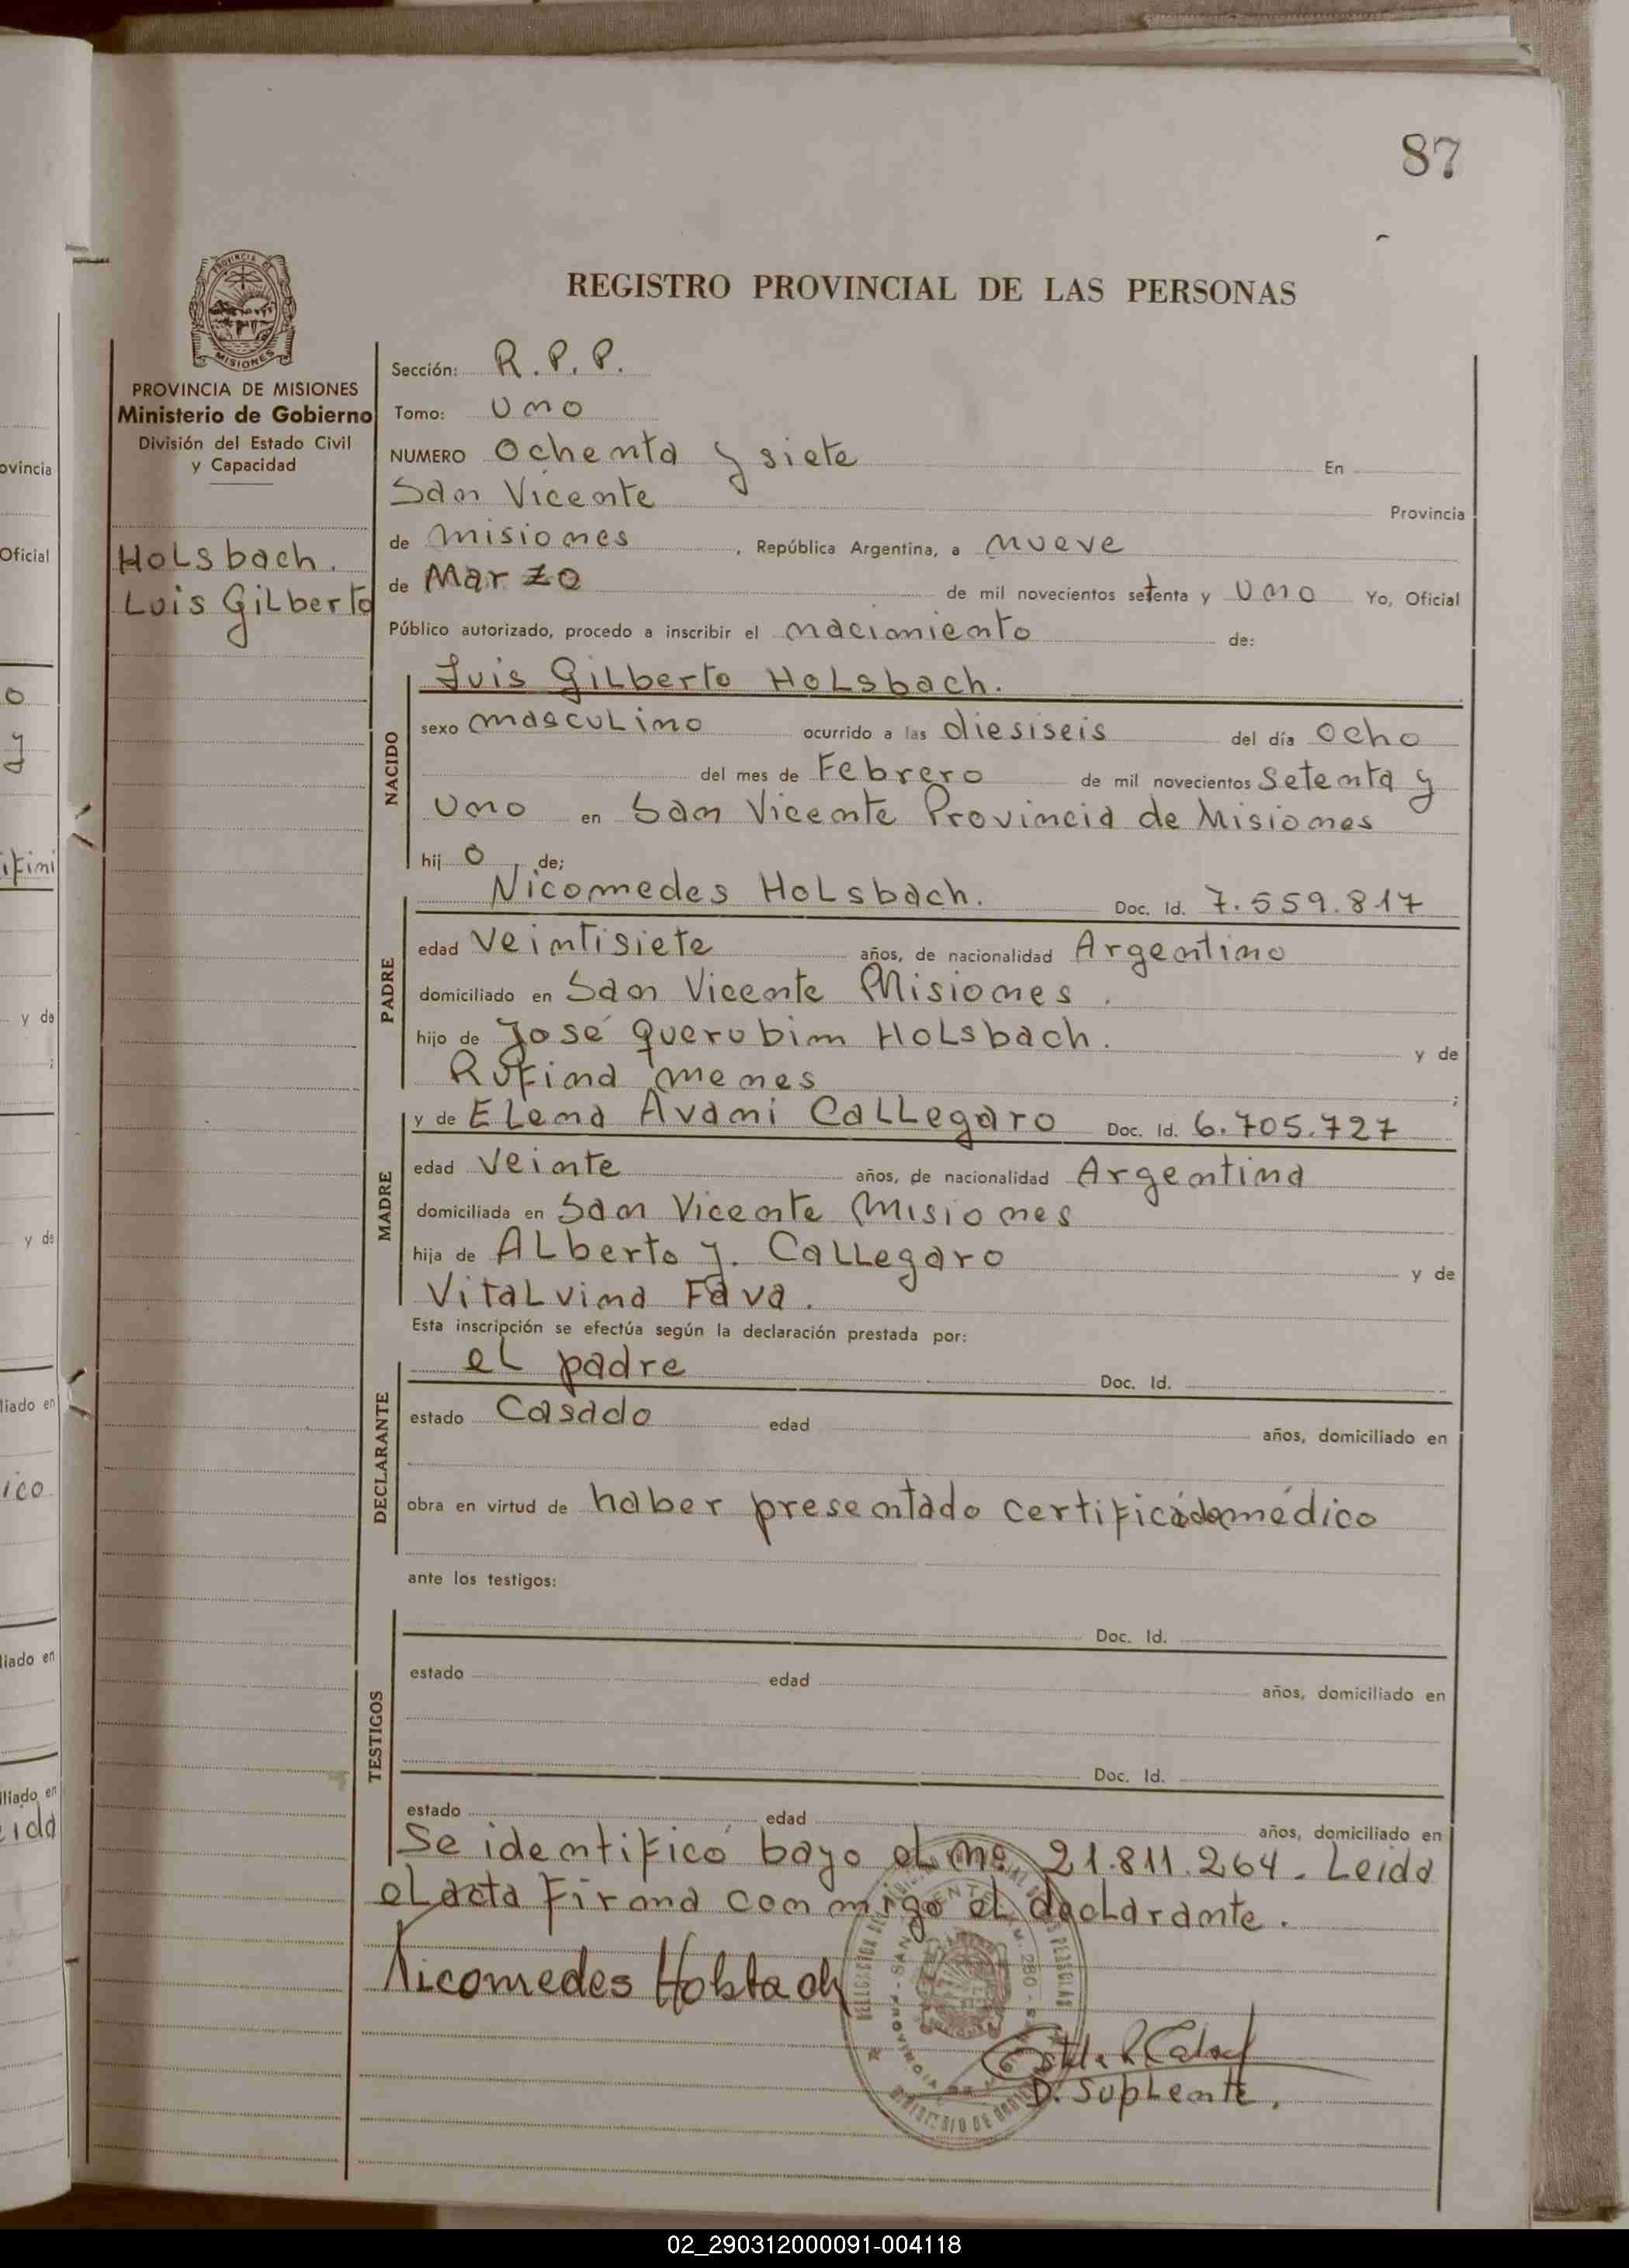 87
REGISTRO PROVINCIAL DE LAS PERSONAS
PROVINCIA DE
MISIONES
PROVINCIA DE MISIONES
Ministerio de Gobierno
División del Estado Civil
y Capacidad
Holsbach.
Luis Gilberto
Sección: R.P.P.
Tomo: Uno
NUMERO Ochenta y siete En
San Vicente Provincia
de Misiones, República Argentina, a nueve
de Marzo de mil novecientos setenta y uno Yo, Oficial
Público autorizado, procedo a inscribir el nacimiento de:
NACIDO
Luis Gilberto Holsbach.
sexo masculino ocurrido a las diesiseis del día ocho
del mes de Febrero de mil novecientos setenta y
uno en San Vicente Provincia de Misiones
hijo, de;
PADRE
Nicomedes Holsbach. Doc. Id. 7.559.817
edad veintisiete años, de nacionalidad Argentino
domiciliado en San Vicente Misiones.
hijo de José Querubim Holsbach. y de
Rufina menes ;
MADRE
y de Elena Avani Callegaro Doc. Id. 6.705.727
edad veinte años, de nacionalidad Argentina
domiciliada en San Vicente Misiones
hija de Alberto J. Callegaro y de
Vitalvina Fava.
Esta inscripción se efectúa según la declaración prestada por:
DECLARANTE
el padre Doc. Id.
estado Casado edad años, domiciliado en
obra en virtud de haber presentado certificado médico
ante los testigos:
TESTIGOS
Doc. Id.
estado edad años, domiciliado en
Doc. Id.
estado edad años, domiciliado en
Se identificó bayo el nº 21.811.264. Leida
el acta firana conmigo el declarante.
Nicomedes Holsbach
D. Suplente.
ovincia
Oficial
o
y
y de
;
y de
liado en
ico
liado en
iliado en
eida
02_290312000091-004118